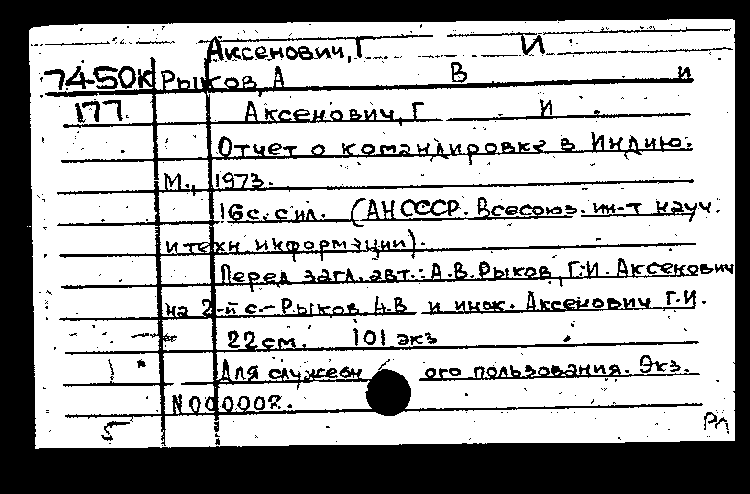 Аксенович, Г И
74-50К Рыков, А В и
177 Аксенович, Г И
Отчет о командировке в Индию.
М., 1973.
16с. с ил. (АН СССР. Всесоюз. ин-т науч.
и техн. информации).
Перед загл. авт.: А.В. Рыков, Г.И. Аксенович
на 2-й с.- Рыков А.В и инж. Аксенович Г.И.
22 см. 101 экз
Для служебн ого пользования. Экз.
N 000002.